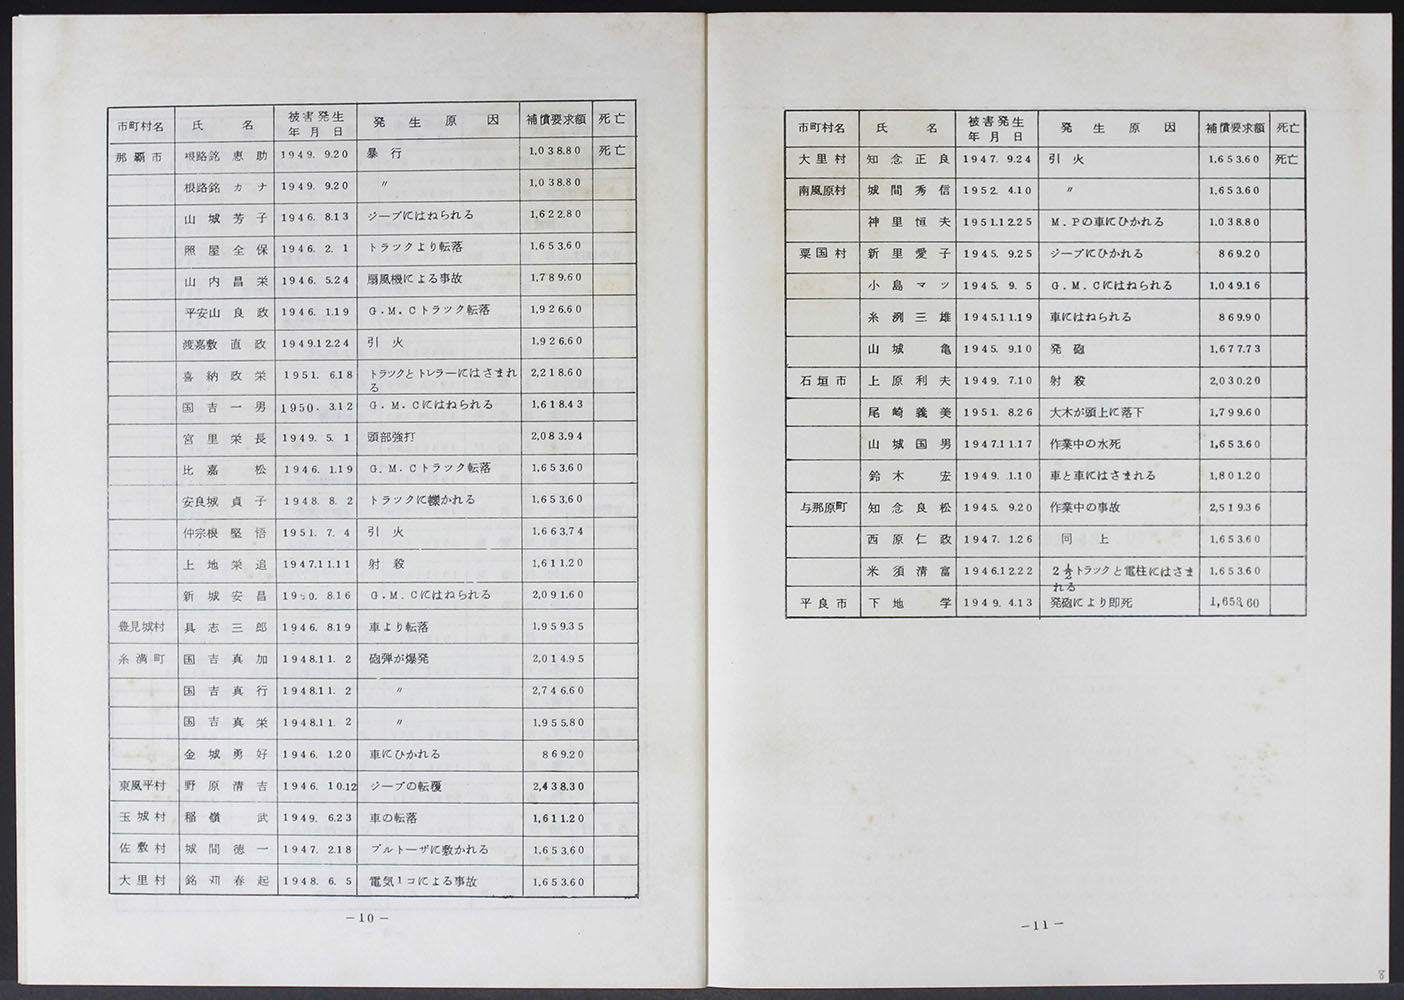 市町村名 氏名 被害発生年月日 発生原因 補償要求額 死亡
那覇市 根路銘恵助 1949. 9.20 暴行 1,038.80 死亡
根路銘カナ 1949. 9.20 〃 1,038.80
山城芳子 1946. 8.13 ジープにはねられる 1,622.80
照屋全保 1946. 2. 1 トラックより転落 1,653.60
山内昌栄 1946. 5.24 扇風機による事故 1,789.60
平安山良政 1946. 1.19 G.M.Cトラック転落 1,926.60
渡嘉敷直政 1949.12.24 引火 1,926.60
喜納政栄 1951. 6.18 トラックとトレラーにはさまれる 2,218.60
国吉一男 1950. 3.12 G.M.Cにはねられる 1,618.43
宮里栄長 1949. 5. 1 頭部強打 2,083.94
比嘉松 1946. 1.19 G.M.Cトラック転落 1,653.60
安良城貞子 1948. 8. 2 トラックに轢かれる 1,653.60
仲宗根堅悟 1951. 7. 4 引火 1,663.74
上地栄追 1947.11.11 射殺 1,611.20
新城安昌 8.16 G.M.Cにはねられる 2,091.60
豊見城村 具志三郎 1946. 8.19 車より転落 1,959.35
糸満町 国吉真加 1948.11. 2 砲弾が爆発 2,014.95
国吉真行 1948.11. 2 〃 2,746.60
国吉真栄 1948.11. 2 〃 1,955.80
金城勇好 1946. 1.20 車にひかれる 869.20
東風平村 野原清吉 1946. 10.12 ジープの転覆 2,438.30
玉城村 稲嶺武 1949. 6.23 車の転落 1,611.20
佐敷村 城間徳一 1947. 2.18 ブルトーザに敷かれる 1,653.60
大里村 銘苅春起 1948. 6. 5 電気1コによる事故 1,653.60
-10-
市町村名 氏名 被害発生年月日 発生原因 補償要求額 死亡
大里村 知念正良 1947. 9.24 引火 1,653.60 死亡
南風原村 城間秀信 1952. 4.10 〃 1,653.60
神里恒夫 1951.12.25 M.Pの車にひかれる 1,038.80
粟国村 新里愛子 1945. 9.25 ジープにひかれる 869.20
小島マツ 1945. 9. 5 G.M.Cにはねられる 1,049.16
糸洌三雄 1945.11.19 車にはねられる 869.90
山城亀 1945. 9.10 発砲 1,677.73
石垣市 上原利夫 1949. 7.10 射殺 2,030.20
尾崎義美 1951. 8.26 大木が頭上に落下 1,799.60
山城国男 1947.11.17 作業中の水死 1,653.60
鈴木宏 1949. 1.10 車と車にはさまれる 1,801.20
与那原町 知念良松 1945. 9.20 作業中の事故 2,519.36
西原仁政 1947. 1.26 同上 1,653.60
米須清富 1946.12.22 2½トラックと電柱にはさまれる 1,653.60
平良市 下地学 1949. 4.13 発砲により即死 1,653.60
-11-
8